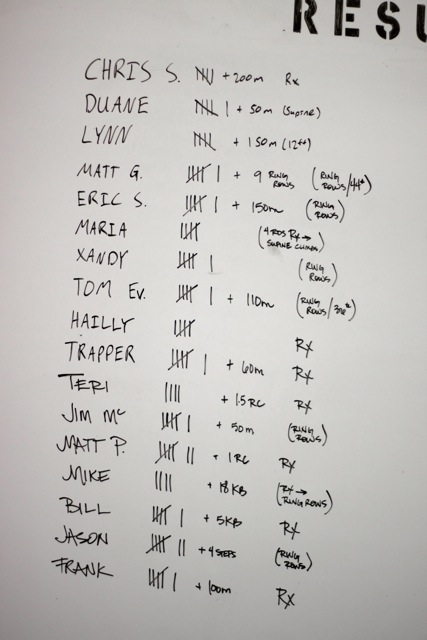 RESU
CHRIS S. 卌 + 200m Rx
DUANE 卌 | + 50m (SUPINE)
LYNN 卌 + 150m (12ft)
MATT G. 卌 | + 9 RING ROWS (RING ROWS/44#)
ERIC S. 卌 | + 150m (RING ROWS)
MARIA 卌 (4 RDS Rx → SUPINE CLIMBS)
XANDY 卌 | (RING ROWS)
TOM EV. 卌 | + 110m (RING ROWS/ )
HAILLY 卌 Rx
TRAPPER 卌 | + 60m Rx
TERI |||| + 1.5 RC Rx
JIM Mc 卌 | + 50m (RING ROWS)
MATT P. 卌 || + 1 RC Rx
MIKE |||| + 18 KB (Rx → RING ROWS)
BILL 卌 | + 5KB Rx
JASON 卌 || + 4 STEPS (RING ROWS)
FRANK 卌 | + 100m Rx